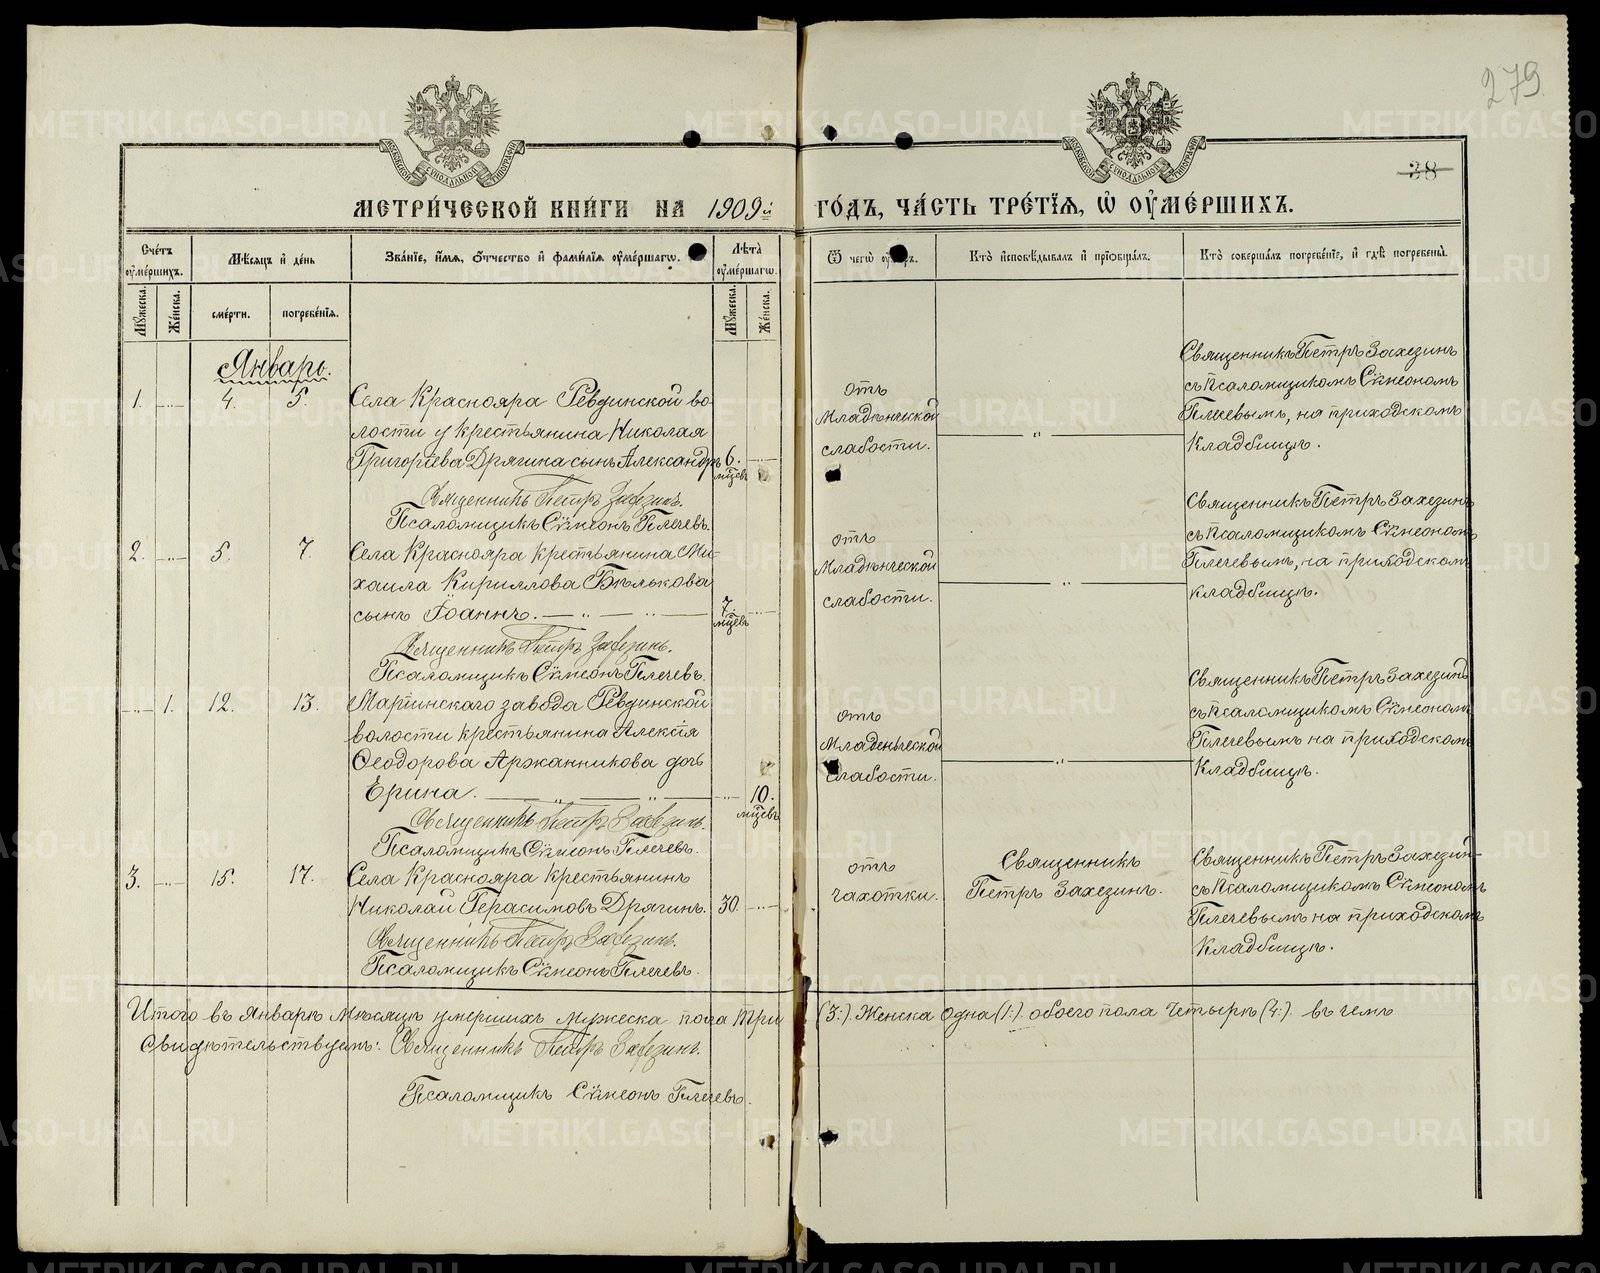 279
38
МЕТРИ́ЧЕСКОЙ КНИ́ГИ НА 1909й ГО́ДЪ, ЧА́СТЬ ТРЕ́ТІѦ, Ѡ҆ ОУ҆МЕ́РШИХЪ.
Сче́тъ оу҆ме́ршихъ.
Мꙋ́жеска.
Же́нска.
Мѣ́сѧцъ и҆ де́нь
сме́рти.
погребе́нїѧ.
Зва́нїе, и҆́мѧ, ѻ҆́тчество и҆ фами́лїѧ оу҆ме́ршагѡ.
Лѣ́та оу҆ме́ршагѡ.
Мꙋ́жеска.
Же́нска.
Ѿ чегѡ̀
Кто̀ и҆сповѣ́дывалъ и҆ прїѡбща́лъ.
Кто̀ соверша́лъ погребе́нїе, и҆ гдѣ̀ погребены̀.
Январь.
1. 4. 5.
Села Краснояра Ревдинской во-
лости у крестьянина Николая
Григорьева Дрягина сынъ Александръ 6.
мцевъ
Священникъ Петръ Захезинъ.
Псаломщикъ Сѵмеонъ Плечевъ.
отъ
Младѣнческой
слабости.
Священникъ Петръ Захезинъ
съ Псаломщикомъ Сѵмеономъ
Плечевымъ, на приходскомъ
Кладбищѣ.
2. 5. 7.
Села Краснояра крестьянина Ми-
хаила Кириллова Бѣлькова
сынъ Іоаннъ. 7.
мцевъ
Священникъ Петръ Захезинъ.
Псаломщикъ Сѵмеонъ Плечевъ.
отъ
Младѣнческой
слабости.
Священникъ Петръ Захезинъ
съ Псаломщикомъ Сѵмеономъ
Плечевымъ, на приходскомъ
кладбищѣ.
1. 12. 13.
Маріинскаго завода Ревдинской
волости крестьянина Алексія
Ѳеодорова Аржанникова дочь
Ерина. 10.
мцевъ
Священникъ Петръ Захезинъ.
Псаломщикъ Сѵмеонъ Плечевъ.
отъ
Младеньческой
слабости.
Священникъ Петръ Захезинъ
съ Псаломщикомъ Сѵмеономъ
Плечевымъ на приходскомъ
Кладбищѣ.
3. 15. 17.
Села Краснояра крестьянинъ
Николай Герасимовъ Дрягинъ. 30.
Священникъ Петръ Захезинъ.
Псаломщикъ Сѵмеонъ Плечевъ.
отъ
чахотки.
Священникъ
Петръ Захезинъ.
Священникъ Петръ Захезинъ
съ Псаломщикомъ Сѵмеономъ
Плечевымъ на приходскомъ
Кладбищѣ.
Итого въ Январѣ Мѣсяцѣ умершихъ мужеска пола три (3:). Женска одна (1:) обоего пола четырѣ (4:). въ чемъ
Свидѣтельствуемъ: Священникъ Петръ Захезинъ.
Псаломщикъ Сѵмеонъ Плечевъ.
METRIKI.GASO-URAL.RU